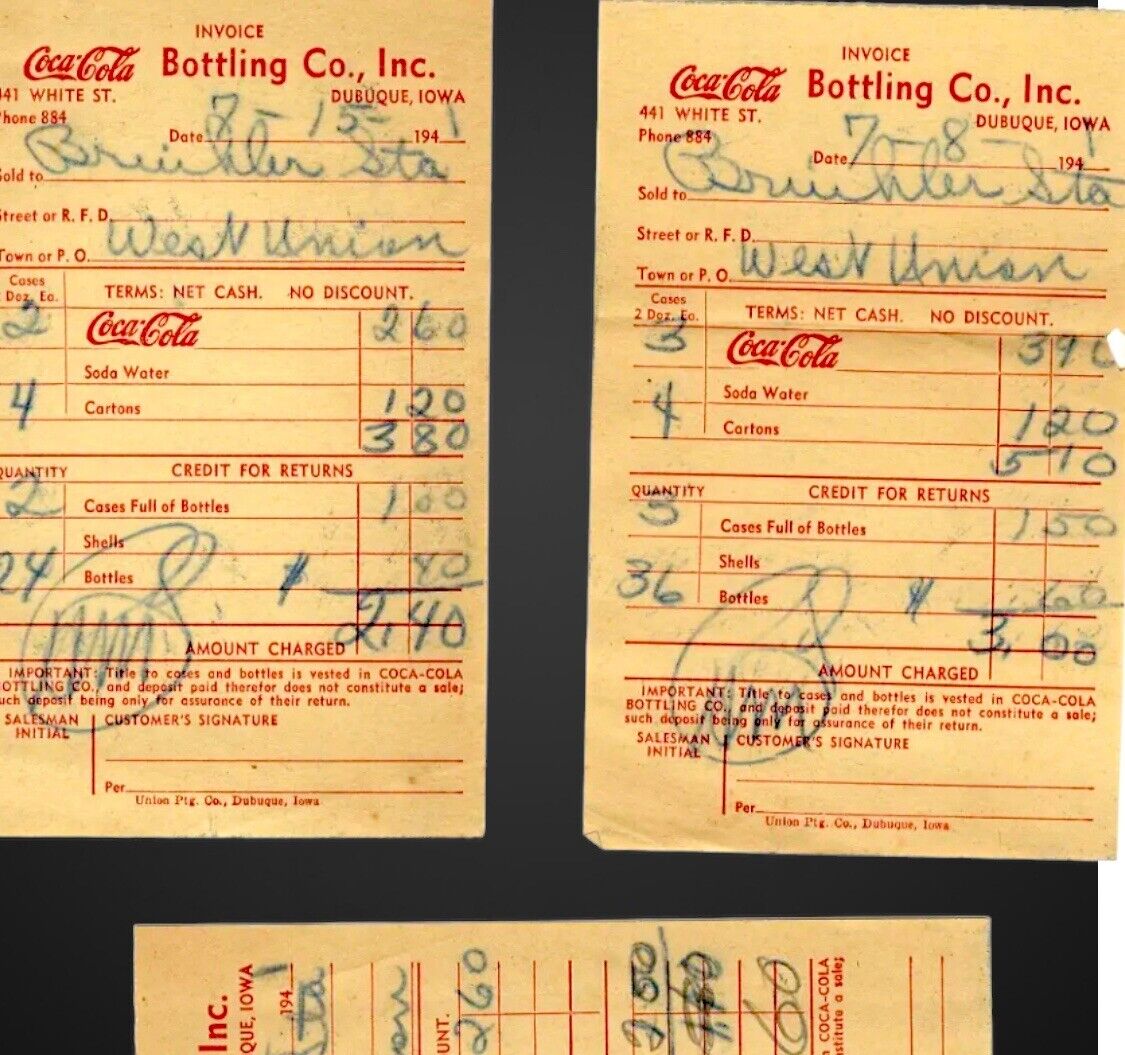 INVOICE
Coca-Cola Bottling Co., Inc.
441 WHITE ST. DUBUQUE, IOWA
Phone 884
Date 7-15- 194 1
Sold to Sta
Street or R. F. D.
Town or P. O. West Union
Cases
2 Doz. Ea. TERMS: NET CASH. NO DISCOUNT.
2 Coca-Cola 2 60
Soda Water
4 Cartons 1 20
3 80
QUANTITY CREDIT FOR RETURNS
2 Cases Full of Bottles 1 00
Shells
24 Bottles $ 40
2.40
AMOUNT CHARGED
IMPORTANT: Title to cases and bottles is vested in COCA-COLA
BOTTLING CO., and deposit paid therefor does not constitute a sale;
such deposit being only for assurance of their return.
SALESMAN CUSTOMER'S SIGNATURE
INITIAL
Per
Union Ptg. Co., Dubuque, Iowa
INVOICE
Coca-Cola Bottling Co., Inc.
441 WHITE ST. DUBUQUE, IOWA
Phone 884
Date 7-8- 194 1
Sold to Sta
Street or R. F. D.
Town or P. O. West Union
Cases
2 Doz. Ea. TERMS: NET CASH. NO DISCOUNT.
3 Coca-Cola 3 90
Soda Water
4 Cartons 1 20
5 10
QUANTITY CREDIT FOR RETURNS
3 Cases Full of Bottles 1 50
Shells
36 Bottles $ 60
3.00
AMOUNT CHARGED
IMPORTANT: Title to cases and bottles is vested in COCA-COLA
BOTTLING CO., and deposit paid therefor does not constitute a sale;
such deposit being only for assurance of their return.
SALESMAN CUSTOMER'S SIGNATURE
INITIAL
Per
Union Ptg. Co., Dubuque, Iowa
Inc.
QUE, IOWA
194 1
Sta
on
UNT.
2 60
2 60
2 50
60
COCA-COLA
nstitute a sale;